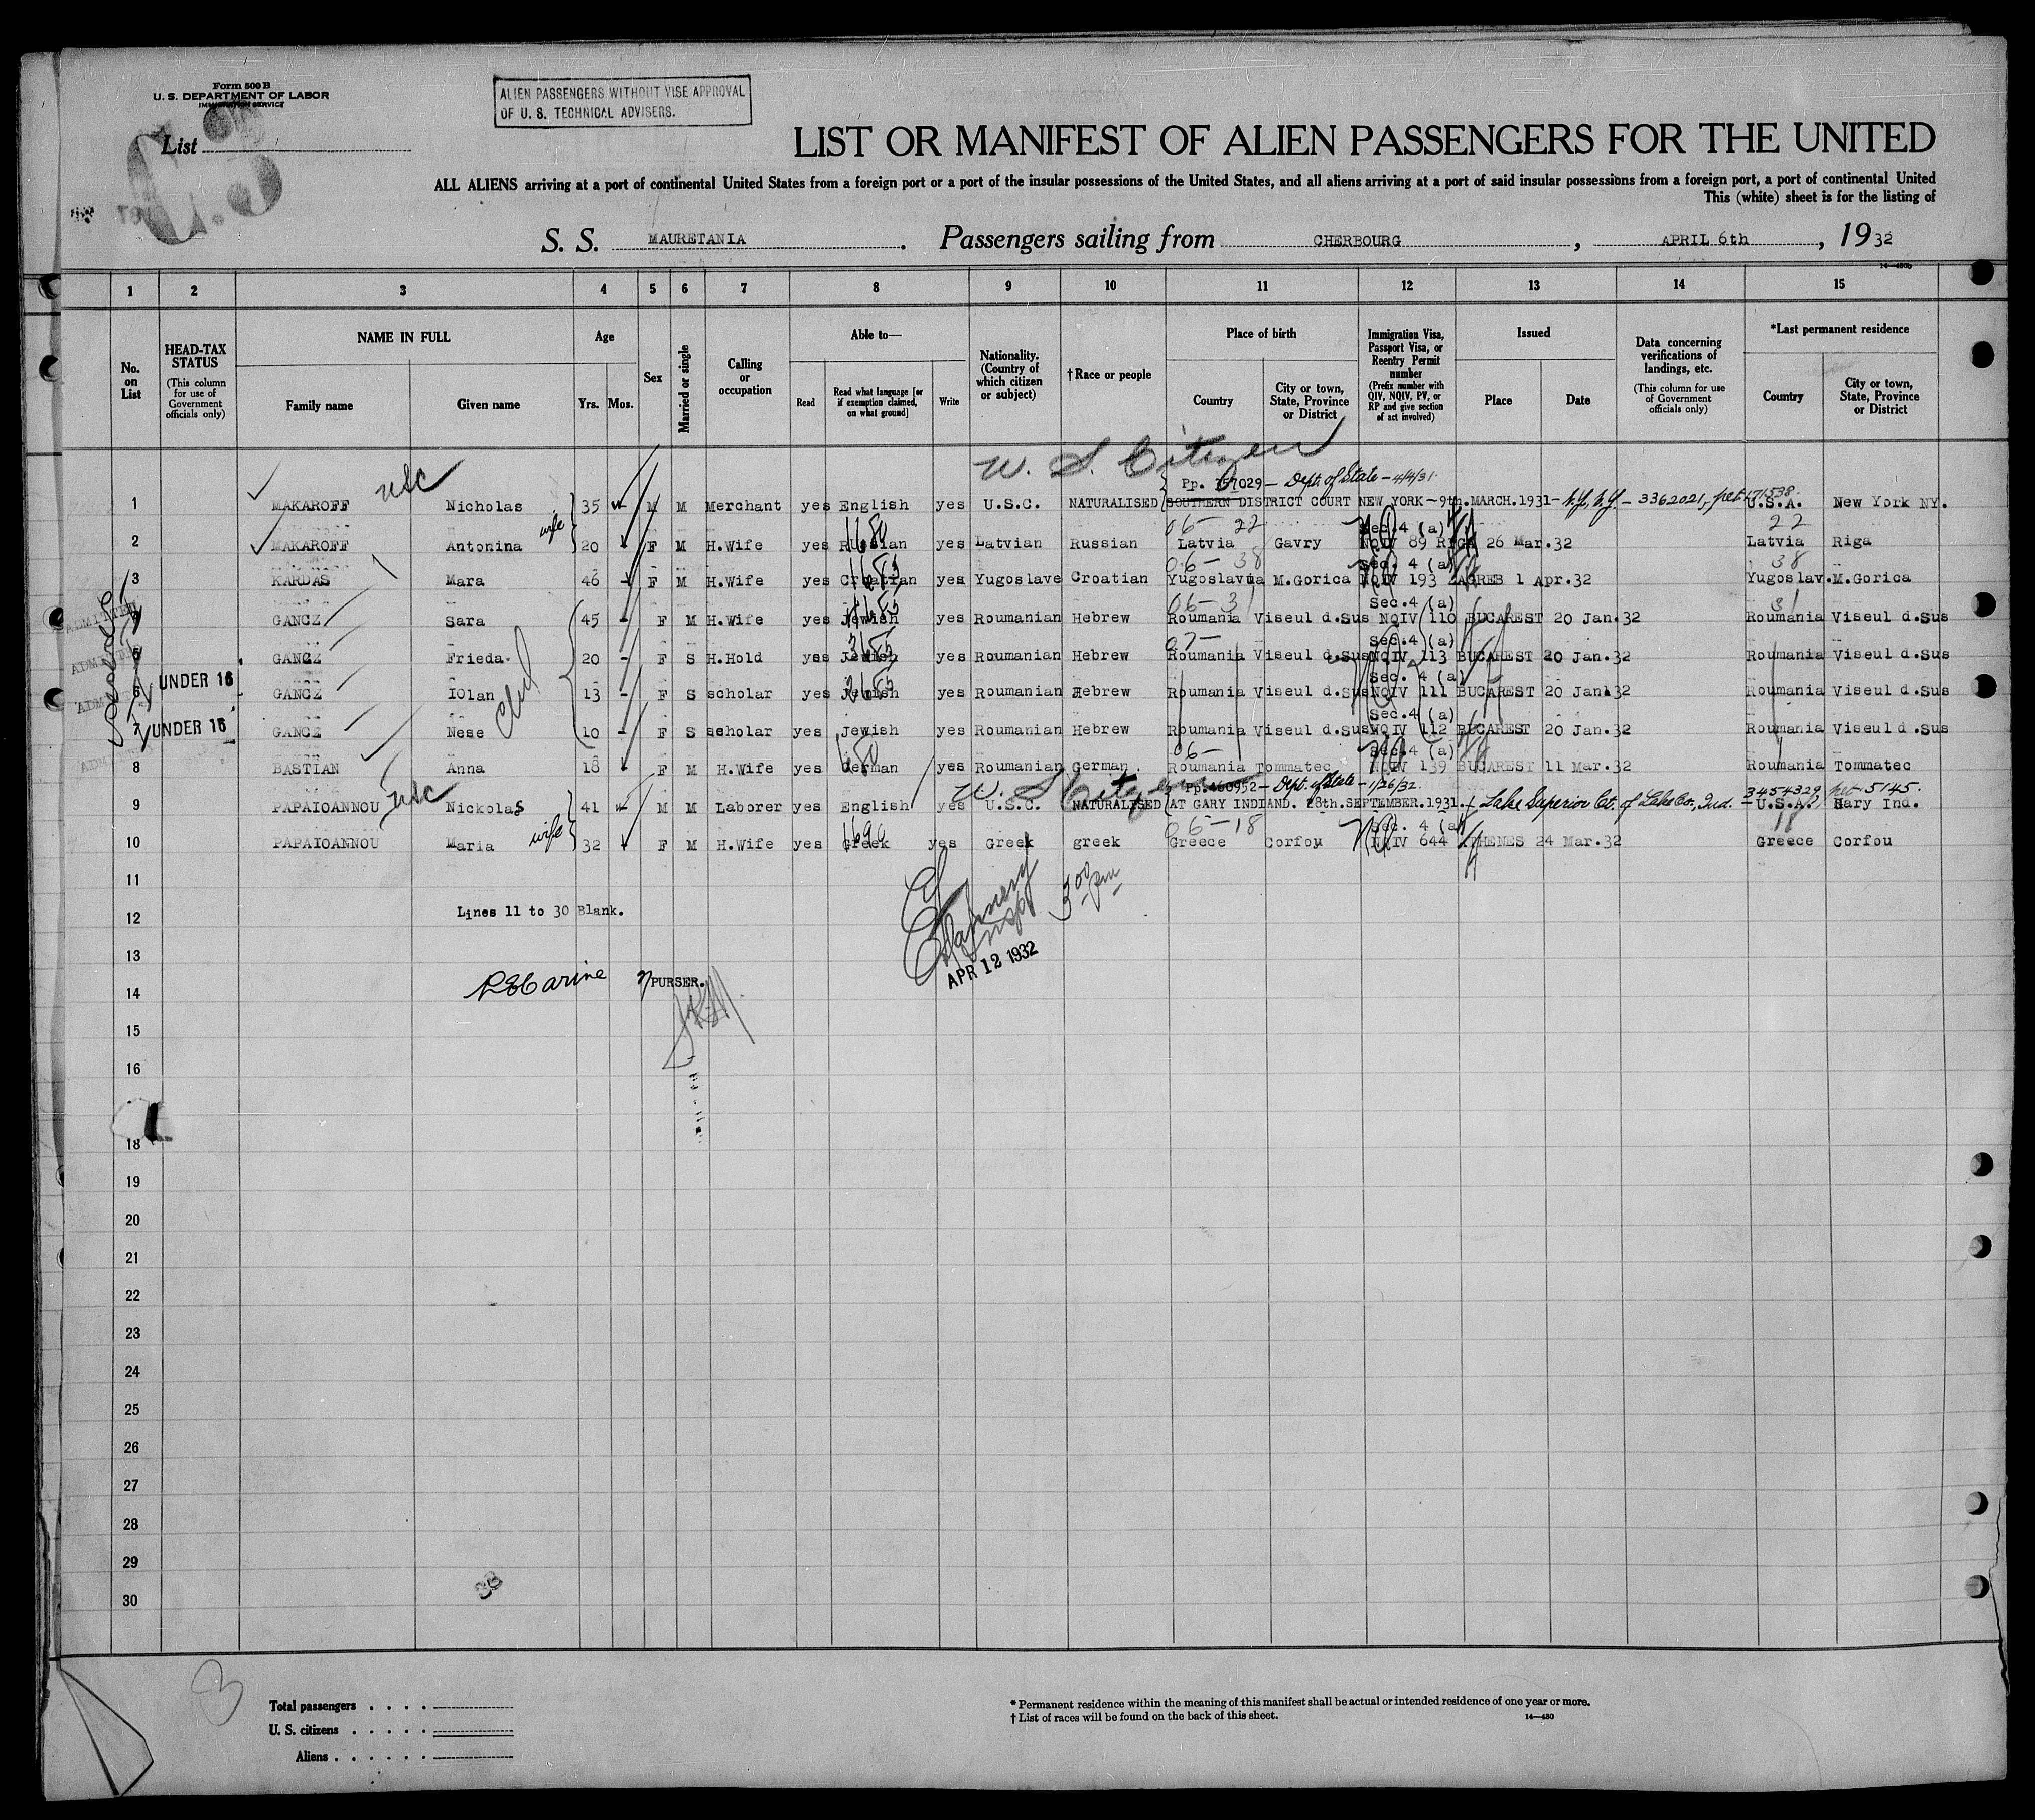 Form 500 B
U. S. DEPARTMENT OF LABOR
IMMIGRATION SERVICE
ALIEN PASSENGERS WITHOUT VISE APPROVAL
OF U. S. TECHNICAL ADVISERS.
List
LIST OR MANIFEST OF ALIEN PASSENGERS FOR THE UNITED
ALL ALIENS arriving at a port of continental United States from a foreign port or a port of the insular possessions of the United States, and all aliens arriving at a port of said insular possessions from a foreign port, a port of continental United
This (white) sheet is for the listing of
S. S. MAURETANIA. Passengers sailing from CHERBOURG, APRIL 6th, 1932
14—430b
1 2 3 4 5 6 7 8 9 10 11 12 13 14 15
No. on List
HEAD-TAX STATUS (This column for use of Government officials only)
NAME IN FULL Family name Given name
Age Yrs. Mos.
Sex
Married or single
Calling or occupation
Able to— Read Read what language [or if exemption claimed, on what ground] Write
Nationality. (Country of which citizen or subject)
† Race or people
Place of birth Country City or town, State, Province or District
Immigration Visa, Passport Visa, or Reentry Permit number (Prefix number with QIV, NQIV, PV, or RP and give section of act involved)
Issued Place Date
Data concerning verifications of landings, etc. (This column for use of Government officials only)
*Last permanent residence Country City or town, State, Province or District
U. S. Citizen
usc
Pp. 357029 — Dept. of State — 4/4/31
1 MAKAROFF Nicholas 35 M M Merchant yes English yes U.S.C. NATURALISED SOUTHERN DISTRICT COURT NEW YORK-9th.MARCH.1931- N.Y, N.Y. - 3362021, pet 171538. U.S.A. New York NY.
wife 1680 06- 22 Sec.4 (a) 22
2 MAKAROFF Antonina 20 F M H.Wife yes Russian yes Latvian Russian Latvia Gavry NQIV 89 RIGA 26 Mar.32 Latvia Riga
06- 38 Sec. 4 (a) 38
3 KARDAS Mara 46 F M H.Wife yes Croatian yes Yugoslave Croatian Yugoslavia M.Gorica NQIV 193 ZAGREB 1 Apr.32 Yugoslav. M.Gorica
06- 31 Sec.4 (a) 31
4 GANCZ Sara 45 F M H.Wife yes Jewish yes Roumanian Hebrew Roumania Viseul d.Sus NQIV 110 BUCAREST 20 Jan.32 Roumania Viseul d.Sus
07- Sec.4 (a)
5 GANCZ Frieda 20 - F S H.Hold yes Jewish yes Roumanian Hebrew Roumania Viseul d.Sus NQIV 113 BUCAREST 20 Jan.32 Roumania Viseul d.Sus
Sec. 4 (a)
6 UNDER 16 GANCZ IOlan 13 - F S scholar yes Jewish yes Roumanian Hebrew Roumania Viseul d.Sus NQIV 111 BUCAREST 20 Jan.32 Roumania Viseul d.Sus
Sec.4 (a)
7 UNDER 16 GANCZ Nese 10 - F S scholar yes Jewish yes Roumanian Hebrew Roumania Viseul d.Sus NQIV 112 BUCAREST 20 Jan.32 Roumania Viseul d.Sus
06- Sec.4 (a)
8 BASTIAN Anna 18 F M H.Wife yes German yes Roumanian German Roumania Tommatec NQIV 139 BUCAREST 11 Mar.32 Roumania Tommatec
usc U. S. Citizen Pp.460952 — Dept. of State — 1/26/32 3454329, pet 5145.
9 PAPAIOANNOU Nickolas 41 M M Laborer yes English yes U.S.C. NATURALISED AT GARY INDIAND. 28th.SEPTEMBER.1931. Lake Superior Co. of Lake Co., Ind. U.S.A. Hary Ind.
wife 1690 06-18 Sec. 4 (a) 18
10 PAPAIOANNOU Maria 32 F M H.Wife yes Greek yes Greek greek Greece Corfou NQIV 644 ATHENES 24 Mar.32 Greece Corfou
11
12 Lines 11 to 30 Blank.
3 00 pm
APR 12 1932
13
14 PURSER.
15
16
18
19
20
21
22
23
24
25
26
27
28
29
30
Total passengers
U. S. citizens
Aliens
* Permanent residence within the meaning of this manifest shall be actual or intended residence of one year or more.
† List of races will be found on the back of this sheet. 14—430